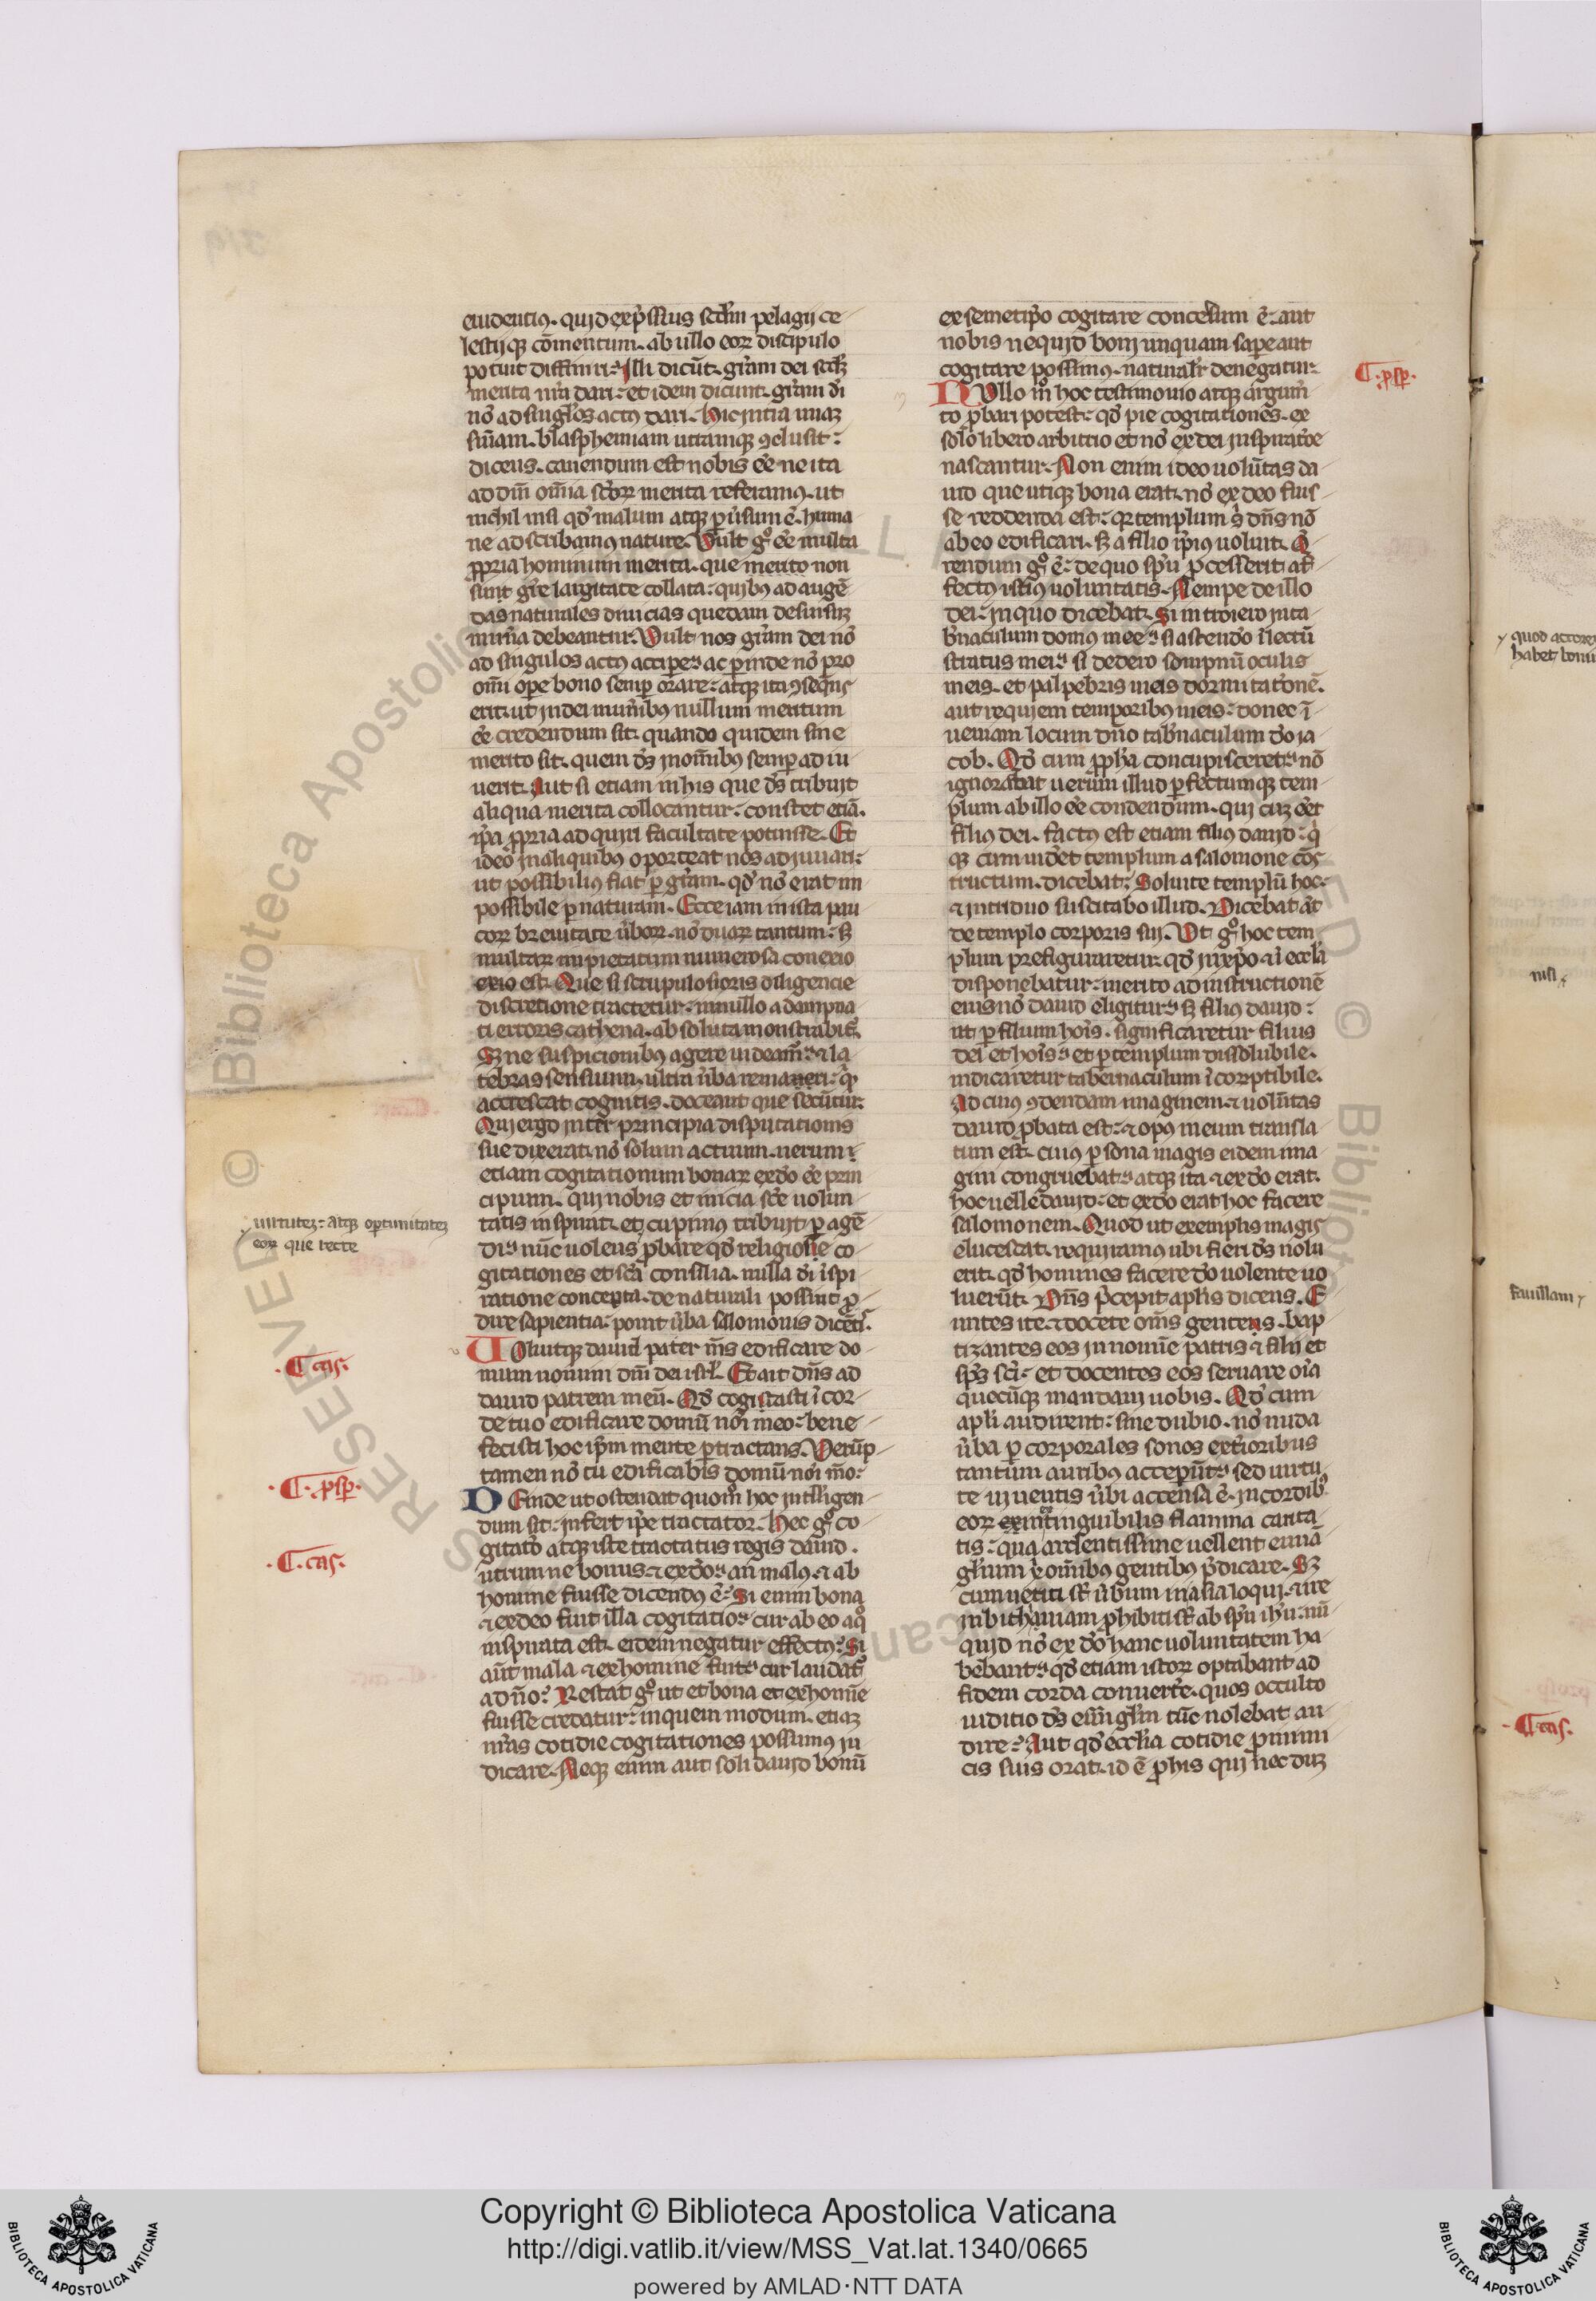 euidentius. quid exp̄ssius scd̄m pelagij ce
lestijq; cōmentum. ab ullo eoꝝ discipulo
potuit diffiniri. Illi dicūt. gr̄am dei scd̄m
merita nr̄a dari. et idem dicunt. gr̄am dī
nō ad singulos actus dari. Hic
blasphemiam utramq; ꝯclusit.
dicens. cauendum est nobis ēe ne ita
ad dn̄m om̄ia sc̄oꝝ merita referamus. ut
nichil nisi qd̄ malum atq; ꝑuersum ē. huma
ne adscribamus nature. Vult gͦ ēe multa
ꝓpria hominum merita. que merito non
sint gr̄e largitate collata. quibus ad augē
das naturales diuicias quedam desursum
munera debeantur. Vult nos gr̄am dei nō
ad singulos actus accipere. ac ꝑinde nō pro
omī ope bono semꝑ orare. atq; ita ꝯseqns
erit. ut in dei munībus nullum meritum
ēe credendum sit. quando quidem sine
merito sit. quem dš in om̄ibus semꝑ adiu
uerit. Aut si etiam in his que dš tribuit
aliqua merita collocantur. constet etiā.
ip̄a ꝓpria adquiri facultate potuisse. Et
ideo in aliquibus oporteat nos adiuuari.
ut possibilius fiat ꝑ gr̄am. qd̄ nō erat im
possibile ꝑ naturam. Ecce iam in ista pau
coꝝ breuitate ūboꝝ. nō duaꝝ tantum. sꝫ
multaꝝ impietatum numerosa conexio
exio est. Que si scrupulosioris diligencie
discretione tractetur. in nullo a dampna
ti erroris cathena. absoluta monstrabitur.
Sꝫ ne suspicionibus agere uideamur. et la
tebras sensuum. ultra ūba remaneri.
accrescat cognitis. doceant que secuntur.
Qui ergo inter principia disputationis
sue dixerat. nō solum actuum. uerum
etiam cogitationum bonaꝝ ex dō ēe prin
cipium. qui nobis et inicia sc̄e uolun
tatis inspirat. et cuptinus tribuit. ꝑagē
di. nūc uolens ꝓbare qd̄ religiose co
gitationes et sc̄a consilia. nulla dī īspi
ratione concepta. de naturali possint ꝓ
dire sapientia. ponit ūba salomonis dicētis.
Voluitq; dauid pater m̄s edificare do
mum nomini dn̄i dei isrl̄. Et ait dn̄s ad
dauid patrem meū. Qd̄ cogitasti ī cor
de tuo edificare domū nōi meo. bene
fecisti hoc ip̄m mente ꝑtractans. Verūp
tamen nō tu edificabis domū nōi m̄o.
Deinde ut ostendat quomͦ hoc intelligen
dum sit. infert ip̄e tractator. Hec gͦ co
gitatō atq; iste tractatus regis dauid.
utrumne bonus et ex dō. an malus et ab
homine fuisse dicendus ē. Si enim bona
et ex deo fuit illa cogitatio. cur ab eo a qͦ
inspirata est. eidem negatur effectus. Si
aūt mala et ex homine fuit. cur laudatur
a dn̄o. Restat gͦ ut et bona et ex homīe
fuisse credatur. in quem modum. etiam
nr̄as cotidie cogitationes possumus iu
dicare. Neq; enim aut soli dauid bonū
uirtutes. atq; oportunitates
eoꝝ que recte
.C. cas.
.C. ꝓsꝑ.
.C. cas.
ex semetip̄o cogitare concessum ē. aut
nobis nequid boni unquam sapere aut
cogitare possimus. naturalr̄ denegatur.
C. ꝓsꝑ.
Nullo mͦ hoc testimonio atq; argumen
to ꝓbari potest. qd̄ pie cogitationes. ex
solo libero arbitrio et nō ex dei inspiratōe
nascantur. Non enim ideo uolūtas da
uid que utiq; bona erat. nō ex deo fuis
se reddenda est. q; templum s̓ dn̄s nō
ab eo edificari. sꝫ a filio ip̄ius uoluit. Q̄
rendum gͦ ē. de quo sp̄u ꝓcesserit af
fectus istius uoluntatis. Nempe de illo
dei. in quo dicebat. Si introiero in ta
b̄naculum domus mee. si ascendō ī lectū
stratus mei. si dedero sompnū oculis
meis. et palpebris meis dormitatōnē.
aut requiem temporibus meis. donec ī
ueniam locum dn̄o tab̄naculum dō ia
cob. Qd̄ cum ꝓph̄a concupisceret. nō
ignorabat uerum illud ꝑfectumq; tem
plum ab illo ēe condendum. qui cum eēt
filius dei. factus est etiam filius dauid.
q; cum uidēt templum a salomone cōs
tructum. dicebat. Soluite templū hoc.
et in triduo suscitabo illud. Dicebat aūt
de templo corporis sui. Vt gͦ hoc tem
plum prefiguraretur. qd̄ in xp̄o et ī eccl̄ia
disponebatur. merito ad instructionē
eius nō dauid eligitur. sꝫ filius dauid.
ut ꝑ filium hoīs. significaretur filius
dei et hoīs. et ꝑ templum dissolubile.
indicaretur tabernaculum ī corꝑtibile.
Ad cuius ꝯdendam imaginem. et uolūtas
dauid ꝓbata est. et opus meum transla
tum est. cuius ꝑsona magis eidem ima
gini congruebat. atq; ita et ex dō erat.
hoc uelle dauid. et ex dō erat hoc facere
salomonem. Quod ut exemplis magis
elucescat. requiramus ubi fieri dš nolu
erit. qd̄ homines facere dō uolente uo
luerūt. Dn̄s p̄cepit apl̄is dicens. E
untes ite et docete om̄s gentes. bap
tizantes eos in nomīe patris et filij et
sp̄s sc̄i. et docentes eos seruare oīa
quecūq; mandaui uobis. Qd̄ cum
apl̄i audirent. sine dubio. nō nuda
ūba ꝑ corporales sonos exterioribus
tantum auribus acceperūt. sed uirtu
te uiuentis ūbi accensa ē. in cordibus
eoꝝ inextinguibilis flamma carita
tis. qua ardentissime uellent euuā
glium om̄ibus gentibus p̄dicare. Sꝫ
cum uetiti sūt ūbum in asia loqui. et ire
in bithiniam ꝓhibiti sūt ab sp̄u ih̄u. nū
quid nō ex dō hanc uoluntatem ha
bebant. qd̄ etiam istoꝝ optabant ad
fidem corda conuerte. quos occulto
iuditio dš euu̅glm̄ tūc nolebat au
dire. Aut qd̄ eccl̄ia cotidie ꝓ inimi
cis suis orat. id ē ꝓ his qui nec dum
quod accores
habet boni
nisi
fauillam
C cas.
Copyright © Biblioteca Apostolica Vaticana
http://digi.vatlib.it/view/MSS_Vat.lat.1340/0665
powered by AMLAD·NTT DATA
BIBLIOTECA APOSTOLICA VATICANA
BIBLIOTECA APOSTOLICA VATICANA